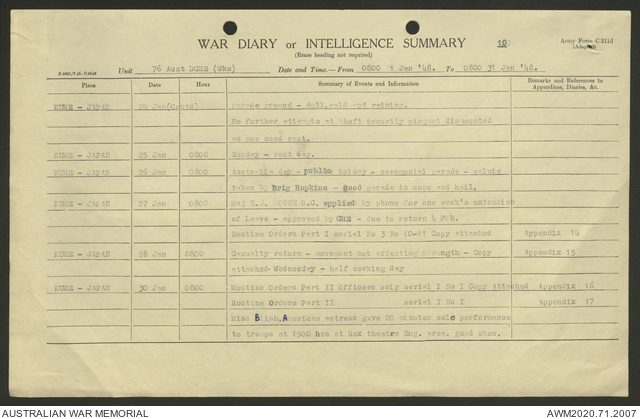 WAR DIARY or INTELLIGENCE SUMMARY
(Erase heading not required)
Army Form C.2118
(Adapted)
Unit 76 Aust DCRE (Wks) Date and Time.—From 0800 1 Jan '48. To 0800 31 Jan '48.
Place Date Hour Summary of Events and Information Remarks and References to Appendices, Diaries, &c.
KURE - JAPAN 24 Jan(Contd) parade ground - dull,cold and raining.
No further attempts at theft security picquet dismounted
as men need rest.
KURE - JAPAN 25 Jan 0800 Sunday - rest day.
KURE - JAPAN 26 Jan 0800 Australia day - public holday - ceremonial parade - salute
taken by Brig Hopkins - good parade in snow and hail.
KURE - JAPAN 27 Jan 0800 Maj O.C. applied by phone for one week's extension
of Leave - approved by CRE - due to return 4 Feb.
Routine Orders Part I serial No 3 No 10-11 Copy attached Appendix 14
KURE - JAPAN 28 Jan 0800 Casualty return - movement not effecting strength - Copy Appendix 15
attached Wednesday - half working day
KURE - JAPAN 30 Jan 0800 Routine Orders Part II Officers only serial I No I Copy Attached Appendix 16
Routine Orders Part II serial I No I Appendix 17
Miss Blish, American actress gave 20 minutes solo performance
to troops at 1900 hrs at Rex theatre Eng. area. good show.
AUSTRALIAN WAR MEMORIAL AWM2020.71.2007